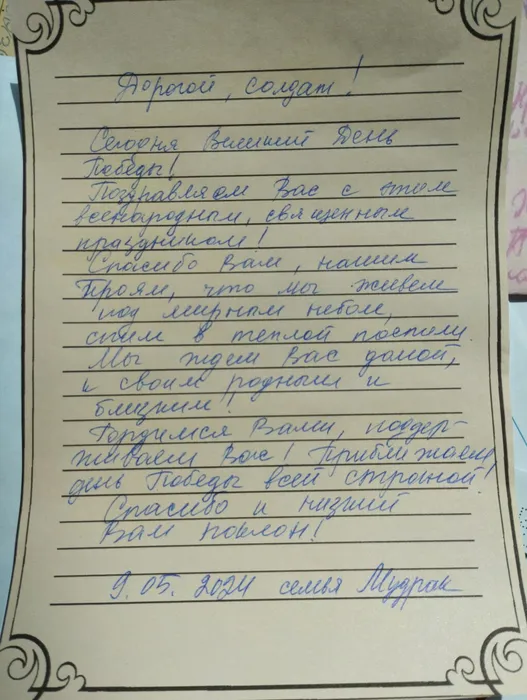 Дорогой, солдат!
Сегодня Великий День
Победы!
Поздравляем Вас с этим
всенародным, священным
праздником!
Спасибо Вам, нашим
Героям, что мы живем
под мирным небом,
спим в теплой постели.
Мы ждем Вас домой,
к своим родным и
близким.
Гордимся Вами, поддер-
живаем Вас! Приближаем
день Победы всей страной!
Спасибо и низкий
Вам поклон!
9.05.2024 семья Мудрак